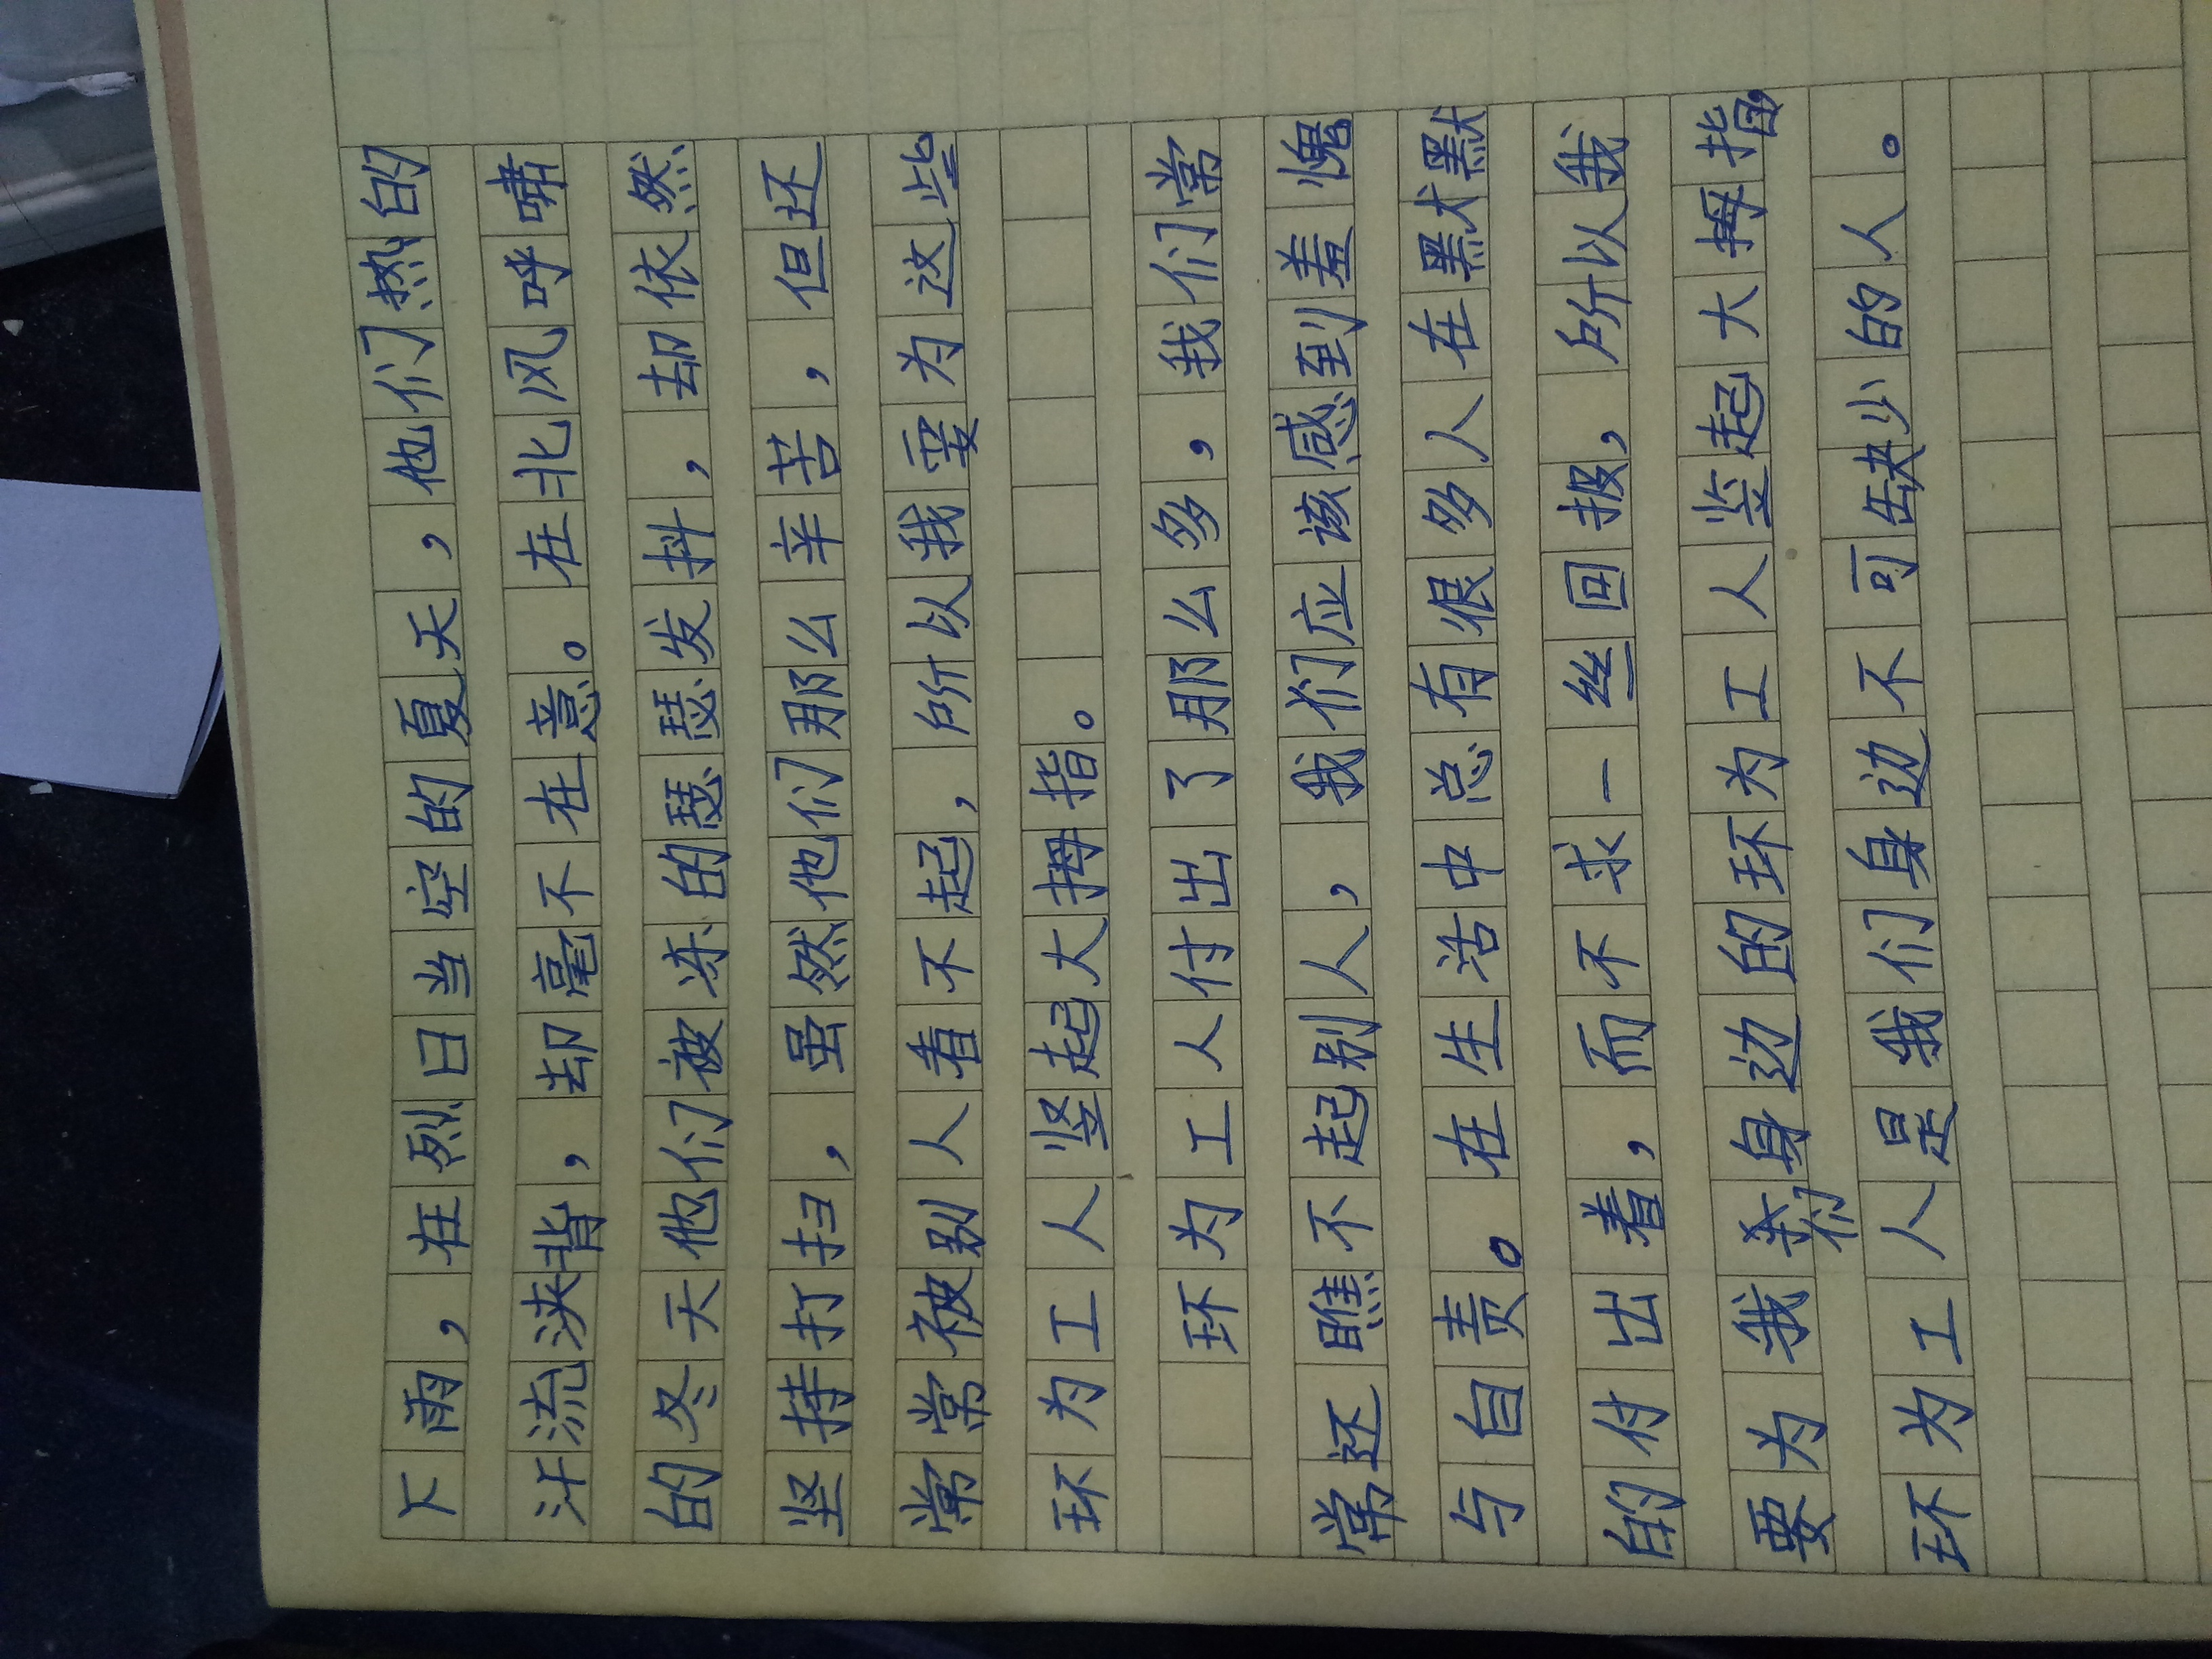 下雨，在烈日当空的夏天，他们热的
汗流浃背，却毫不在意。在北风呼啸
的冬天他们被冻的瑟瑟发抖，却依然
坚持打扫，虽然他们那么辛苦，但还
常常被别人看不起，所以我要为这些
环为工人坚起大拇指。
环为工人付出了那么多，我们常
常还瞧不起别人，我们应该感到羞愧
与自责。在生活中总有很多人在默默
的付出着，而不求一丝回报，所以我
要为我们身边的环为工人竖起大拇指，
环为工人是我们身边不可缺少的人。